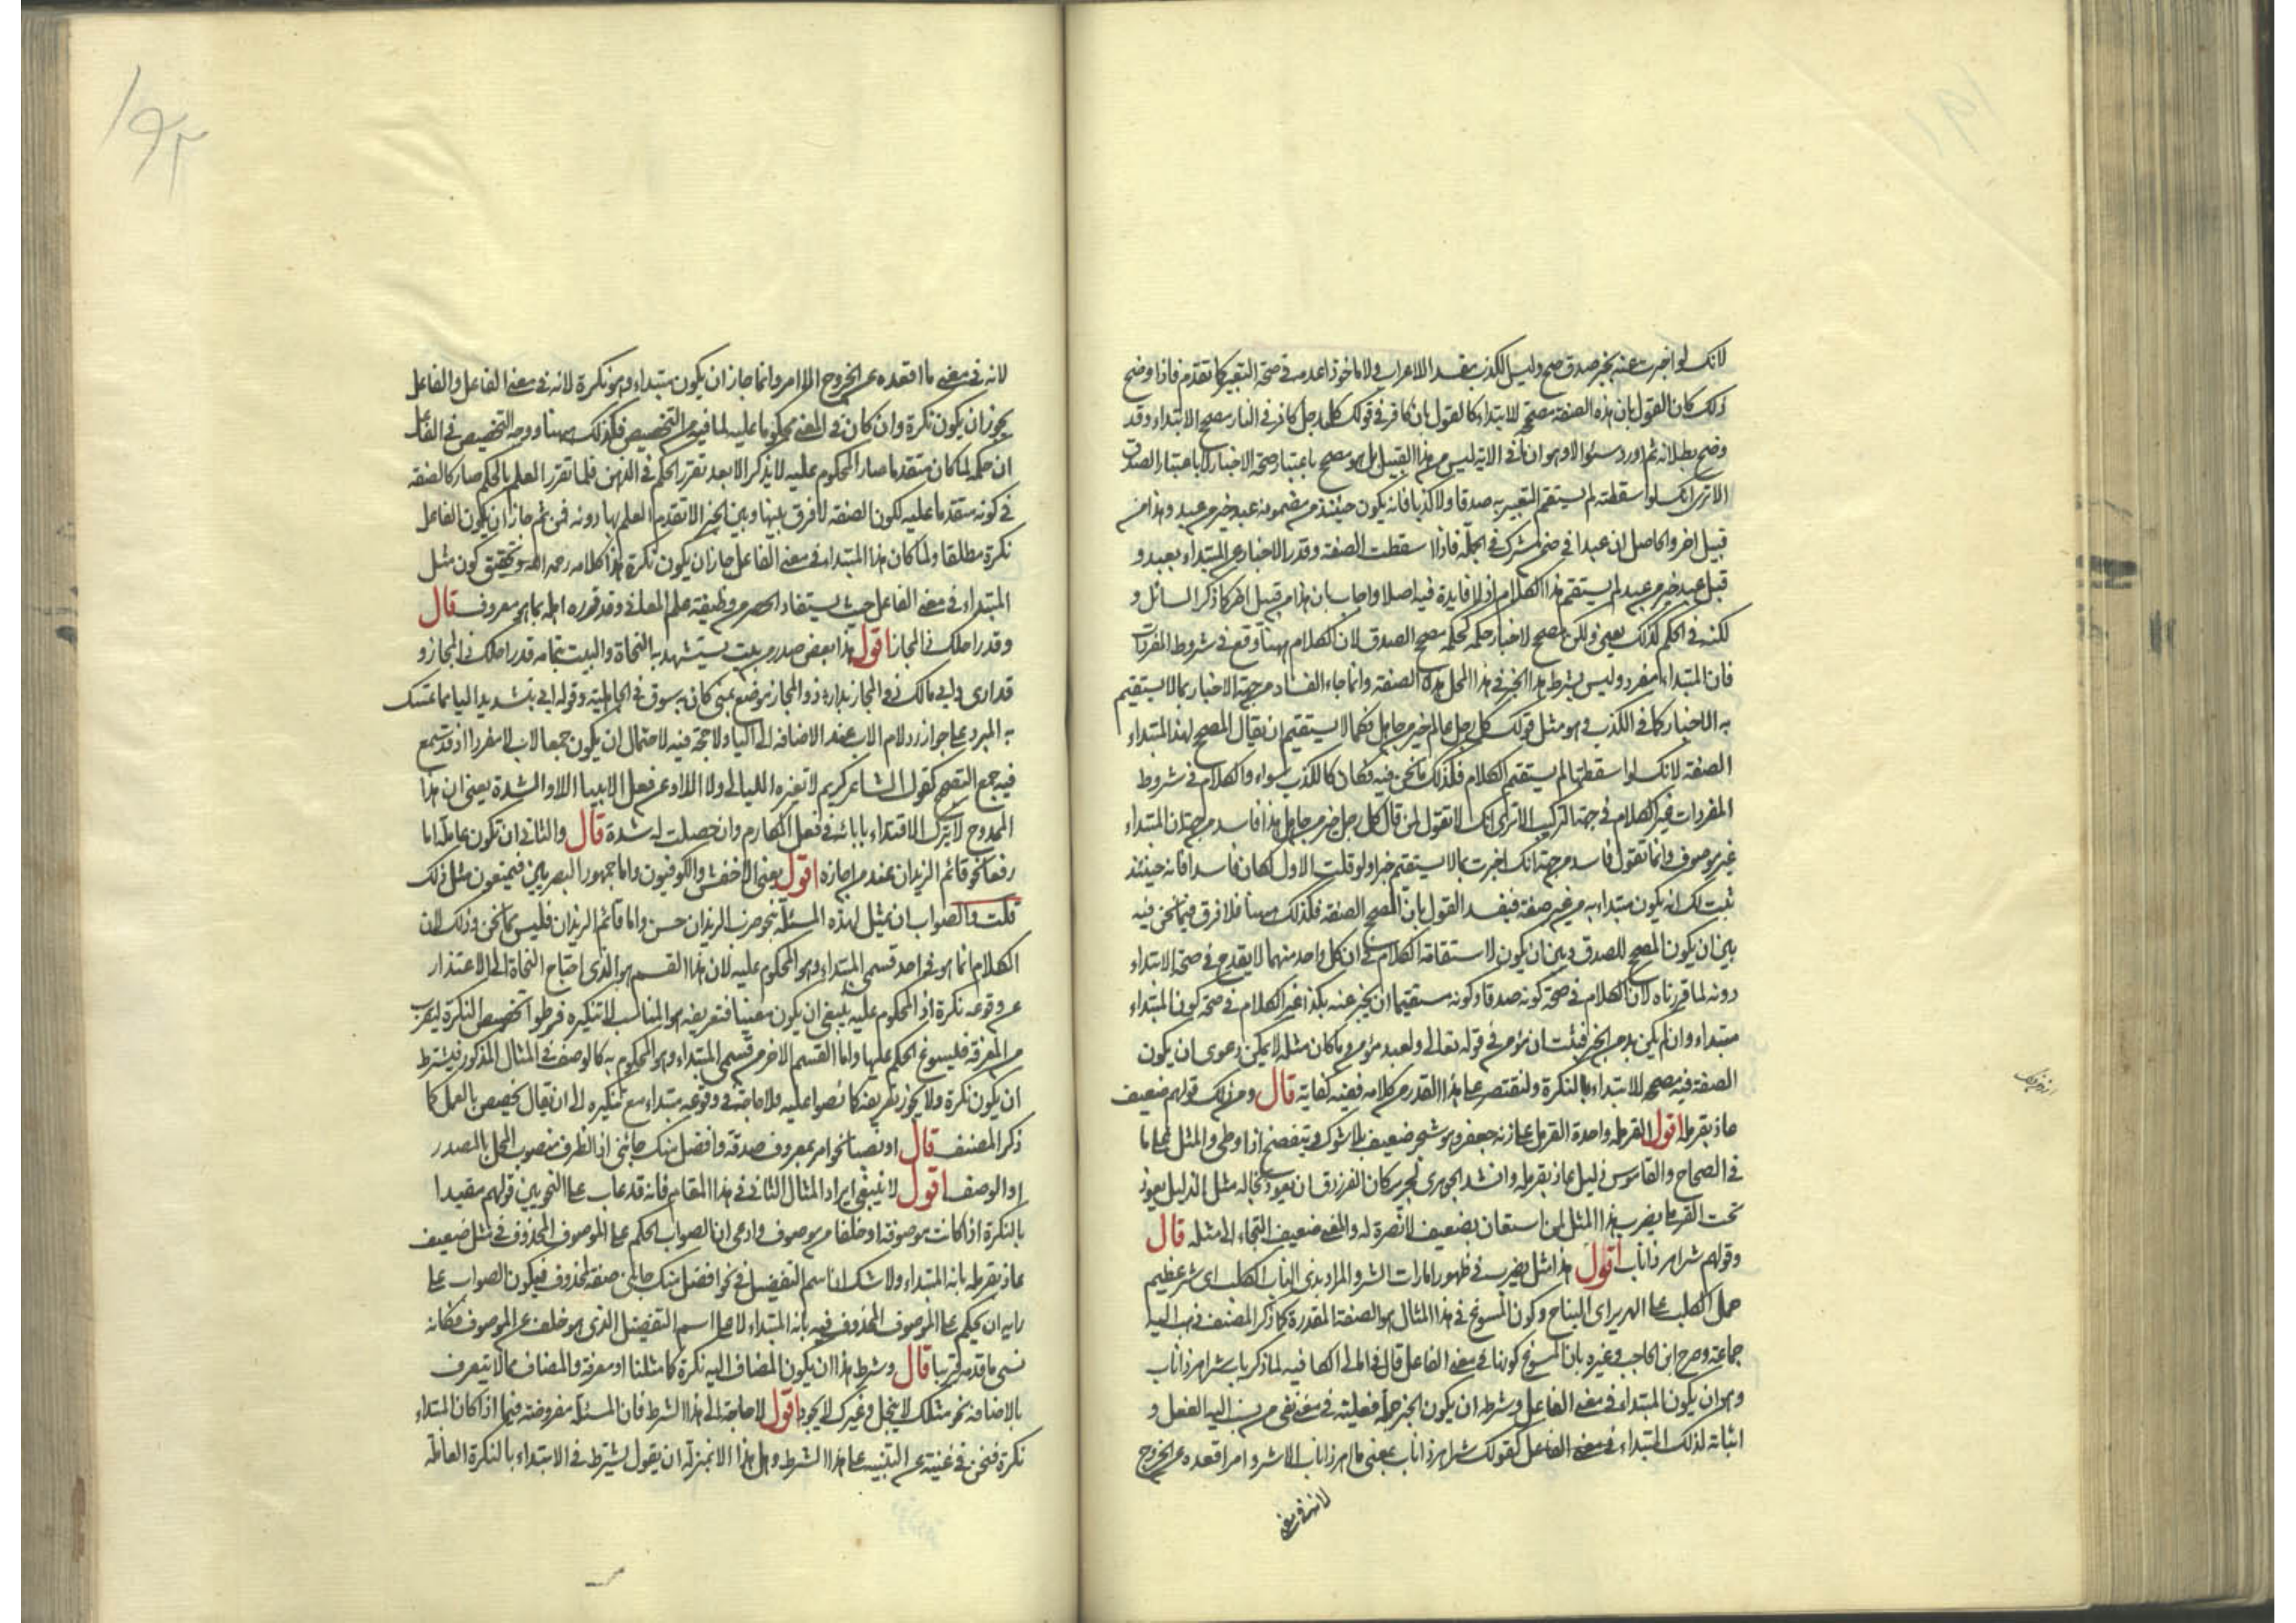 لانك لو اخبرت عنه بخبر صدق صح وليس الكذب يفسد الاعراب ولا ماخوذا عدمه في صحة التعبير كما تقدم فاذا وضح
ذلك كان القول بان هذه الصفة مصححة للابتداء كالقول بان كافر في قولك كل رجل كافر في النار مصحح الابتداء وقد
وضح بطلانه ثم اورد سئوالا وهو ان ما في الاية ليس من هذا القبيل بل هو مصحح باعتبار صحة الاخبار لا باعتبار الصدق
الا ترى انك لو اسقطته لم يستقم التعبير به صدقا ولا كذبا فانه يكون حينئذ من مضمونه عبد خير من عبد وهذا من
قبيل اخر والحاصل ان عبدا في ضمن مشرك في الجملة فاذا اسقطت الصفة وقدر الاخبار عن المبتداء بعبد و
قيل عبد خير من عبد لم يستقم هذا الكلام اذ لا فايدة فيه اصلا واجاب بان هذا من قبيل اخر كما ذكر السائل و
لكنه في الحكم كذلك يعني ولكن مصحح الاخبار حكمه كحكم مصحح الصدق لان الكلام ههنا وقع في شروط المفردات
فان المبتداء مفرد وليس بشرط هذا الخبر في هذا المحل هذه الصفة وانما جاء الفساد من جهة الاخبار بما لا يستقيم
به الاخبار كما في الكذب وهو مثل قولك كل رجل عالم خير من جاهل فكما لا يستقيم ان يقال المصحح لهذا المبتداء
الصفة لانك لو اسقطتها لم يستقم الكلام فكذلك ما نحن فيه فكان كالكذب سواء والكلام في شروط
المفردات غير الكلام في جهة التركيب الا ترى انك لا تقول لمن قال كل رجل خير من جاهل هذا فاسد من جهة ان المبتداء
غير موصوف وانما تقول فاسد من جهة انك اخبرت بما لا يستقيم خبرا ولو قلت الاول لكان فاسدا فانه حينئذ
ثبت لك انه يكون مبتداء به من غير صفة فيفسد القول بان المصحح الصفة فكذلك ههنا فلا فرق فيما نحن فيه
بين ان يكون المصحح للصدق وبين ان يكون لاستقامة الكلام في ان كل واحد منهما لا يقدح في صحة الابتداء
دونه لما قررناه لان الكلام في صحة كونه صدقا وكونه مستقيما ان يخبر عنه بكذا غير الكلام في صحة كون المبتداء
مبتداء وان لم يكن بد من الخبر فثبت ان مؤمن في قوله تعالى ولعبد مؤمن وما كان مثله لا يمكن دعوى ان يكون
الصفة فيه مصححة للابتداء بالنكرة ولنقتصر على هذا القدر من كلامه ففيه كفاية قال ومن ذلك قولهم ضعيف
عاذ بقرملة اقول القرملة واحدة القرمل على زنة جعفر وهو شجر ضعيف بلا شوك وتتفضخ اذا وطى والمثل على ما
في الصحاح والقاموس ذليل عاذ بقرملة وانشد الجوهري لجرير كان الفرزدق ان يعوذ بخاله مثل الذليل يعوذ
تحت القرمل يضرب هذا المثل لمن استعان بضعيف لا نصرة له والمعنى ضعيف التجاء الى مثله قال
وقولهم شر اهر ذا ناب اقول هذا مثل يضرب في ظهور امارات الشر والمراد بذي الناب الكلب اى شر عظيم
حمل الكلب على الهرير اى النباح وكون المسوغ في هذا المثال هو الصفة المقدرة كما ذكر المصنف ذهب اليه
جماعة وصرح ابن الحاجب وغيره بان المسوغ كونها في معنى الفاعل قال في امالى الكافية لما ذكر باب شر اهر ذا ناب
وهو ان يكون المبتداء في معنى الفاعل وشرطه ان يكون الخبر جملة فعلية في معنى نفى من نسب اليه الفعل و
اثباته لذلك المبتداء في معنى الفاعل كقولك شر اهر ذا ناب بمعنى ما اهر ذا ناب الا شر وامر اقعده عن الخروج
لانه في معنى
١٩٢
لانه في معنى ما اقعده عن الخروج الا امر وانما جاز ان يكون مبتداء وهو نكرة لانه في معنى الفاعل والفاعل
يجوز ان يكون نكرة وان كان في المعنى محكوما عليه لما فيه من التخصيص فكذلك ههنا ووجه التخصيص في الفاعل
ان حكمه لما كان متقدما صار المحكوم عليه لا يذكر الا بعد تقرر الحكم في الذهن فلما تقرر العلم بالحكم صار كالصفة
في كونه متقدما عليه لكون الصفة لا فرق بينها وبين الخبر الا تقدم العلم بها دونه فمن ثم جاز ان يكون الفاعل
نكرة مطلقا ولما كان هذا المبتداء في معنى الفاعل جاز ان يكون نكرة هذا كلامه رحمه الله وتحقيق كون مثل
المبتداء في معنى الفاعل حيث يستفاد الحصر من وظيفة علم المعانى وقد قرره اهله بما هو معروف قال
وقدر احلك ذا المجاز اقول هذا بعض صدر من بيت يستشهد به النحاة والبيت بتمامه قدر احلك ذا المجاز و
قد ارى وابي مالك ذو المجاز بدار ذو المجاز موضع بمنى كان به سوق في الجاهلية وقوله ابي بتشديد اليا مما تمسك
به المبرد على جواز رد لام الاب عند الاضافة الى الياء ولا حجة فيه لاحتمال ان يكون جمعا لاب لا مفردا اذ قد سمع
فيه جمع التصحيح كقول الشاعر كريم لا تغيره الليالى ولا اللاواء عن فعل الابينا اللاواء الشدة يعنى ان هذا
الممدوح لا يترك الاقتداء بابائه في فعل المكارم وان حصلت له شدة قال والثانى ان تكون عاملة اما
رفعا نحو قائم الزيدان عند من اجازه اقول يعنى الاخفش والكوفيون واما جمهور البصريين فيمنعون مثل ذلك
قلت والصواب ان يمثل لهذه المسئلة بنحو ضرب الزيدان حسن واما قائم الزيدان فليس مما نحن فيه وذلك لان
الكلام انما هو في احد قسمى المبتداء وهو المحكوم عليه لان هذا القسم هو الذى احتاج النحاة الى الاعتذار
عن وقوعه نكرة اذ المحكوم عليه ينبغى ان يكون معينا فتعريفه هو المناسب لا تنكيره فشرطوا تخصيص النكرة ليقرب
من المعرفة فيسوغ الحكم عليها واما القسم الاخر من قسمى المبتداء وهو المحكوم به كالوصف في المثال المذكور فيشترط
ان يكون نكرة ولا يجوز تعريفه كما نصوا عليه فلا حاجة في وقوعه مبتداء مع تنكيره الى ان يقال تخصيص بالعمل كما
ذكر المصنف قال او نصبا نحو امر بمعروف صدقة وافضل منك جاءنى اذ الظرف منصوب المحل بالمصدر
او الوصف اقول لا ينبغى ايراد المثال الثانى في هذا المقام فانه قد عاب على النحويين قولهم مقيدا
بالنكرة اذا كانت موصوفة او خلفا من موصوف وادعى ان الصواب الحكم على الموصوف المحذوف في مثل ضعيف
عاذ بقرملة بانه المبتداء ولا شك ان اسم التفضيل في نحو افضل منك جاءنى صفة لمحذوف فيكون الصواب على
رايه ان يحكم على الموصوف المحذوف فيه بانه المبتداء لا على اسم التفضيل الذى هو خلف عن الموصوف فكانه
نسى ما قدمه قريبا قال وشرط هذا ان يكون المضاف اليه نكرة كما مثلنا او معرفة والمضاف مما لا يتعرف
بالاضافة نحو مثلك لا يبخل وغيرك لا يجود اقول لا حاجة الى هذا الشرط فان المسئلة مفروضة فيما اذا كان المبتداء
نكرة فنحن في غنية عن التنبيه على هذا الشرط وهل هذا الا بمنزلة ان يقول يشترط في الابتداء بالنكرة العاملة